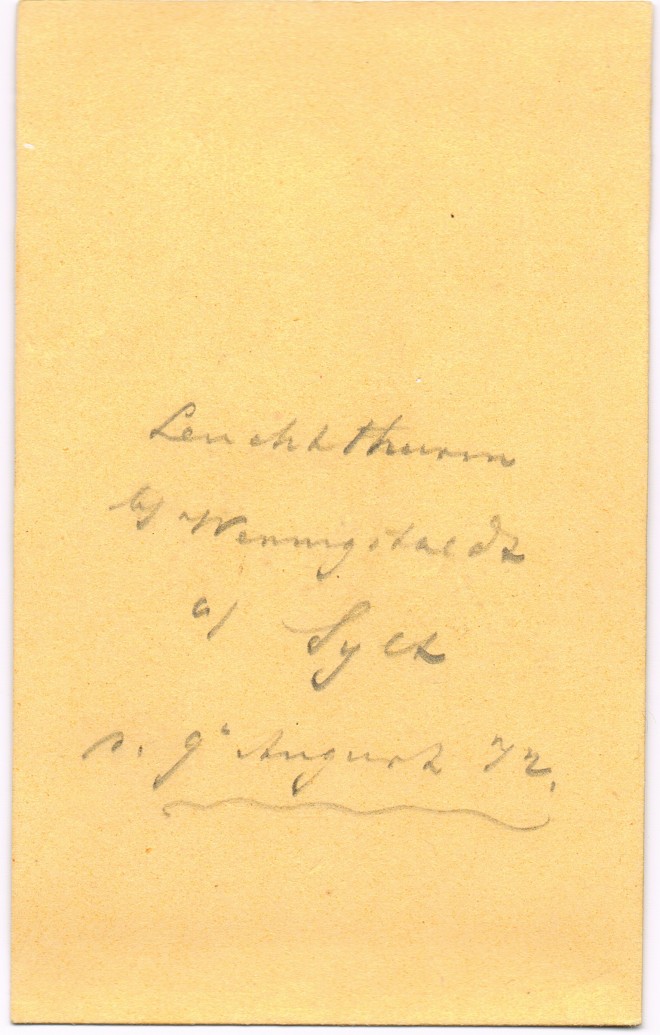 Leuchtthurm
b/ Wennigstaedt
a/ Sylt
9 August 72.